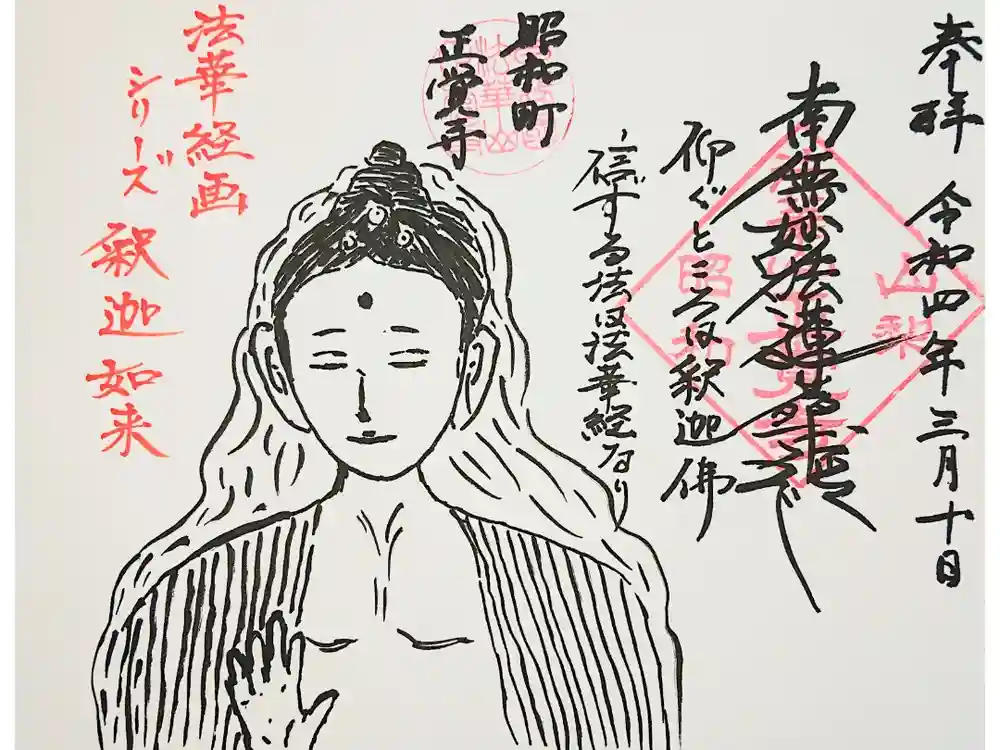 奉拝 令和四年三月十日
南無妙法蓮華経
仰ぐところは釈迦佛
信ずる法は法華経なり
昭和町
正覚寺
法華経画
シリーズ
釈迦如来
山梨
昭和